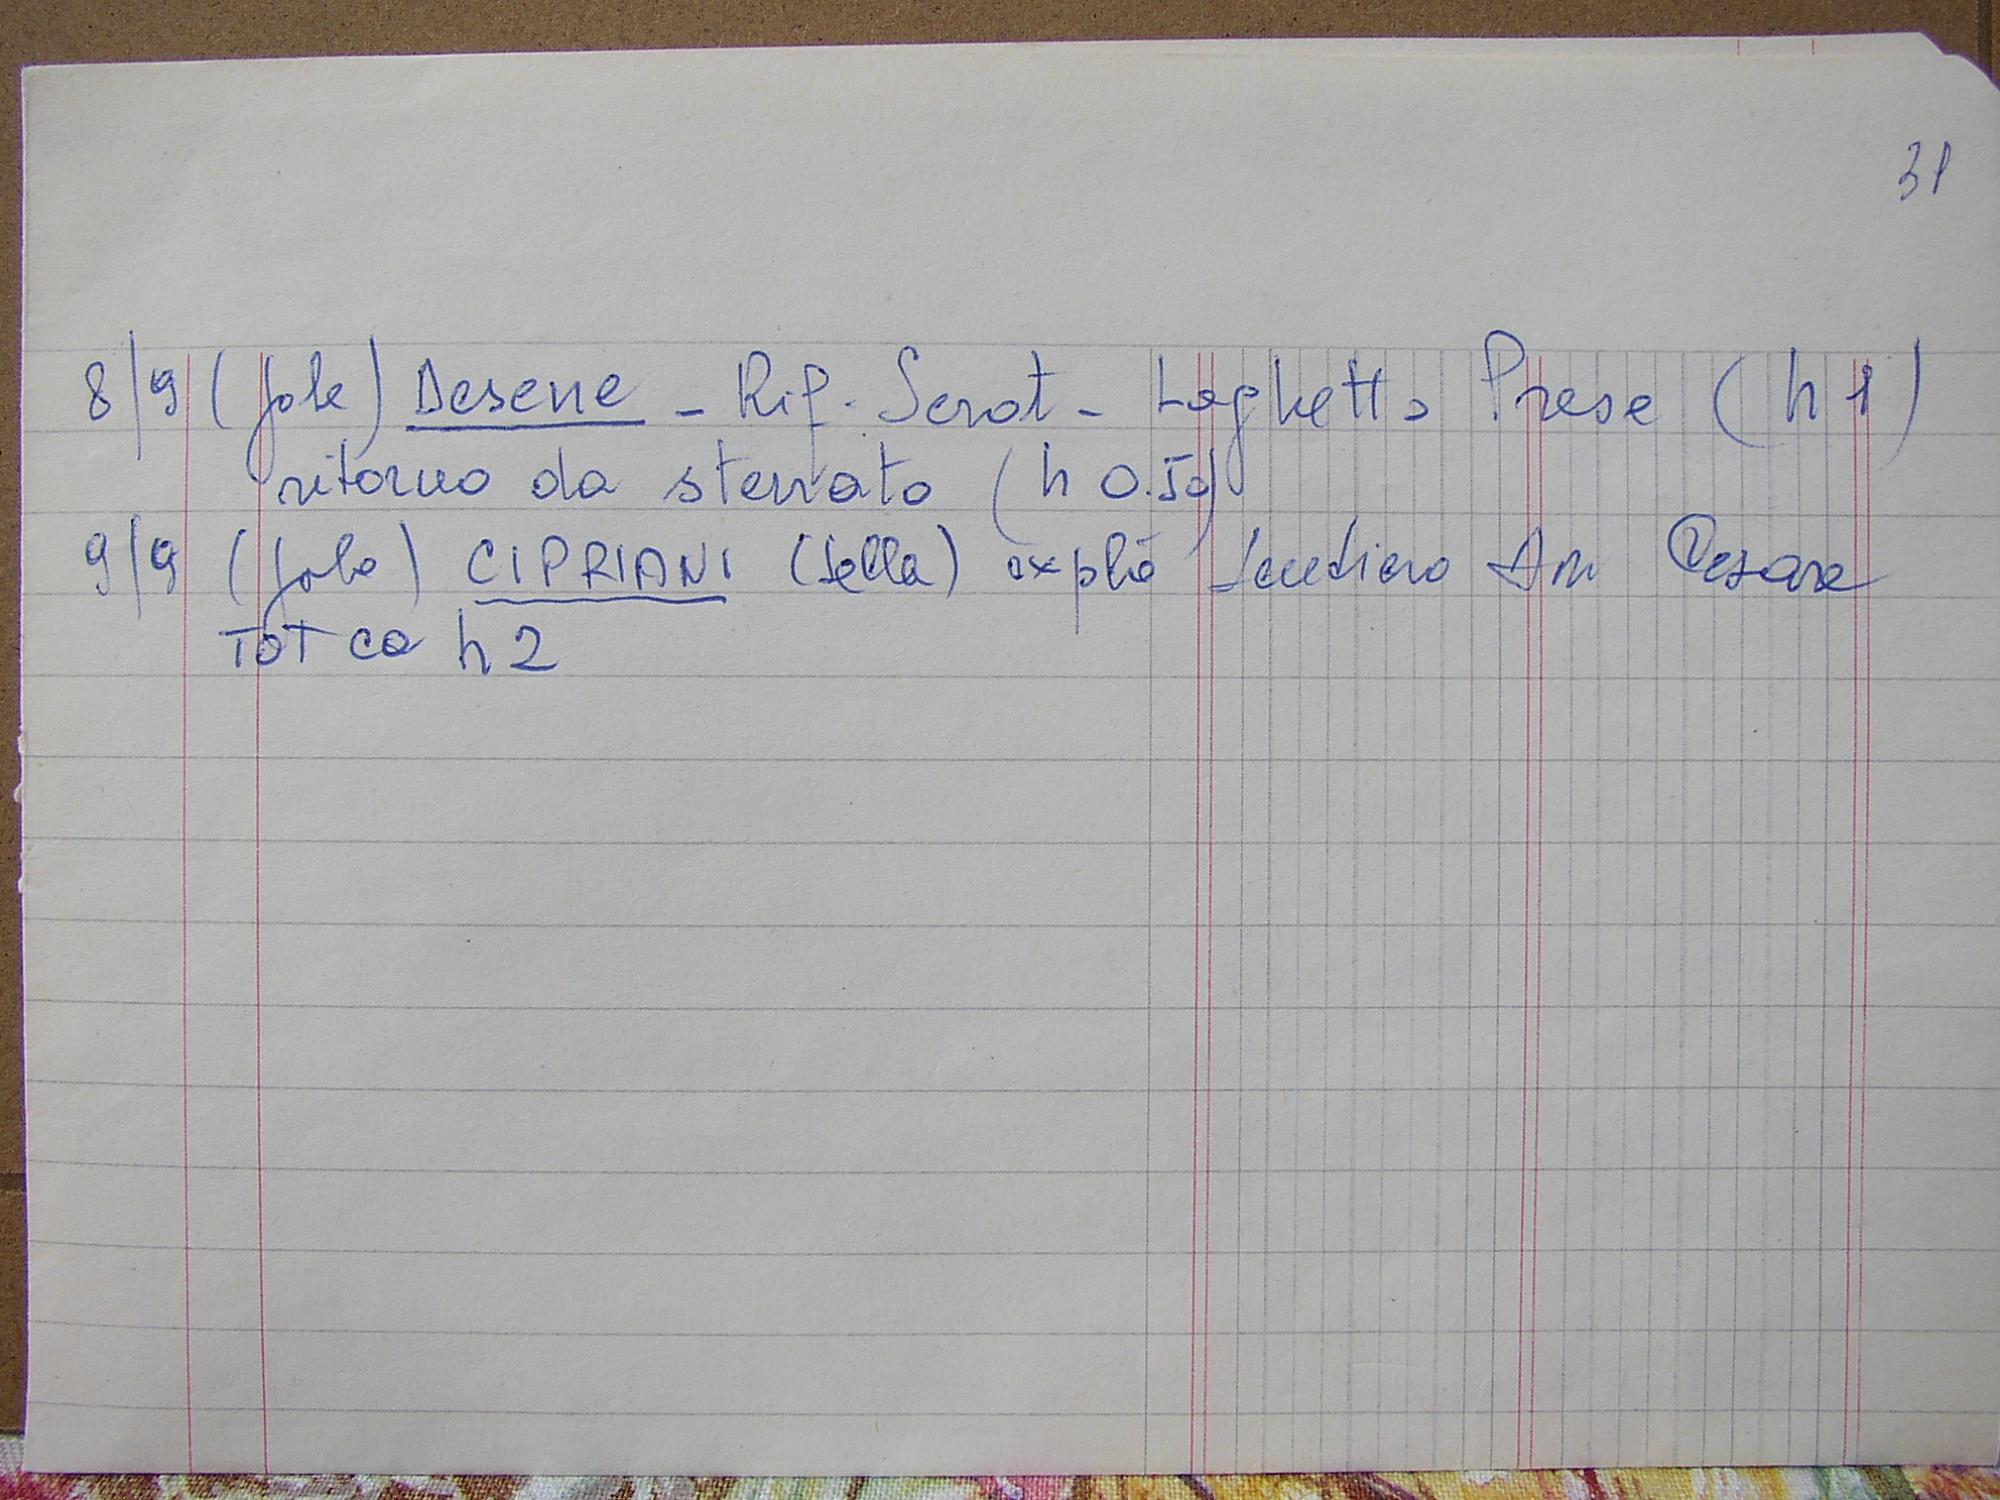 31
8/9 (Jole) Desene - Rif. Serot - Laghetto Prese (h 1)
ritorno da sterrato (h 0.50)
9/9 (Jole) CIPRIANI (Sella) Sentiero Don Cesare
TOT ca h 2